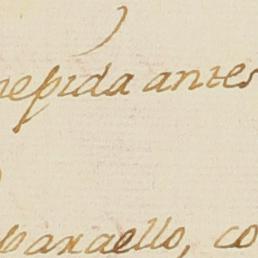 nepida antes
paraello, co